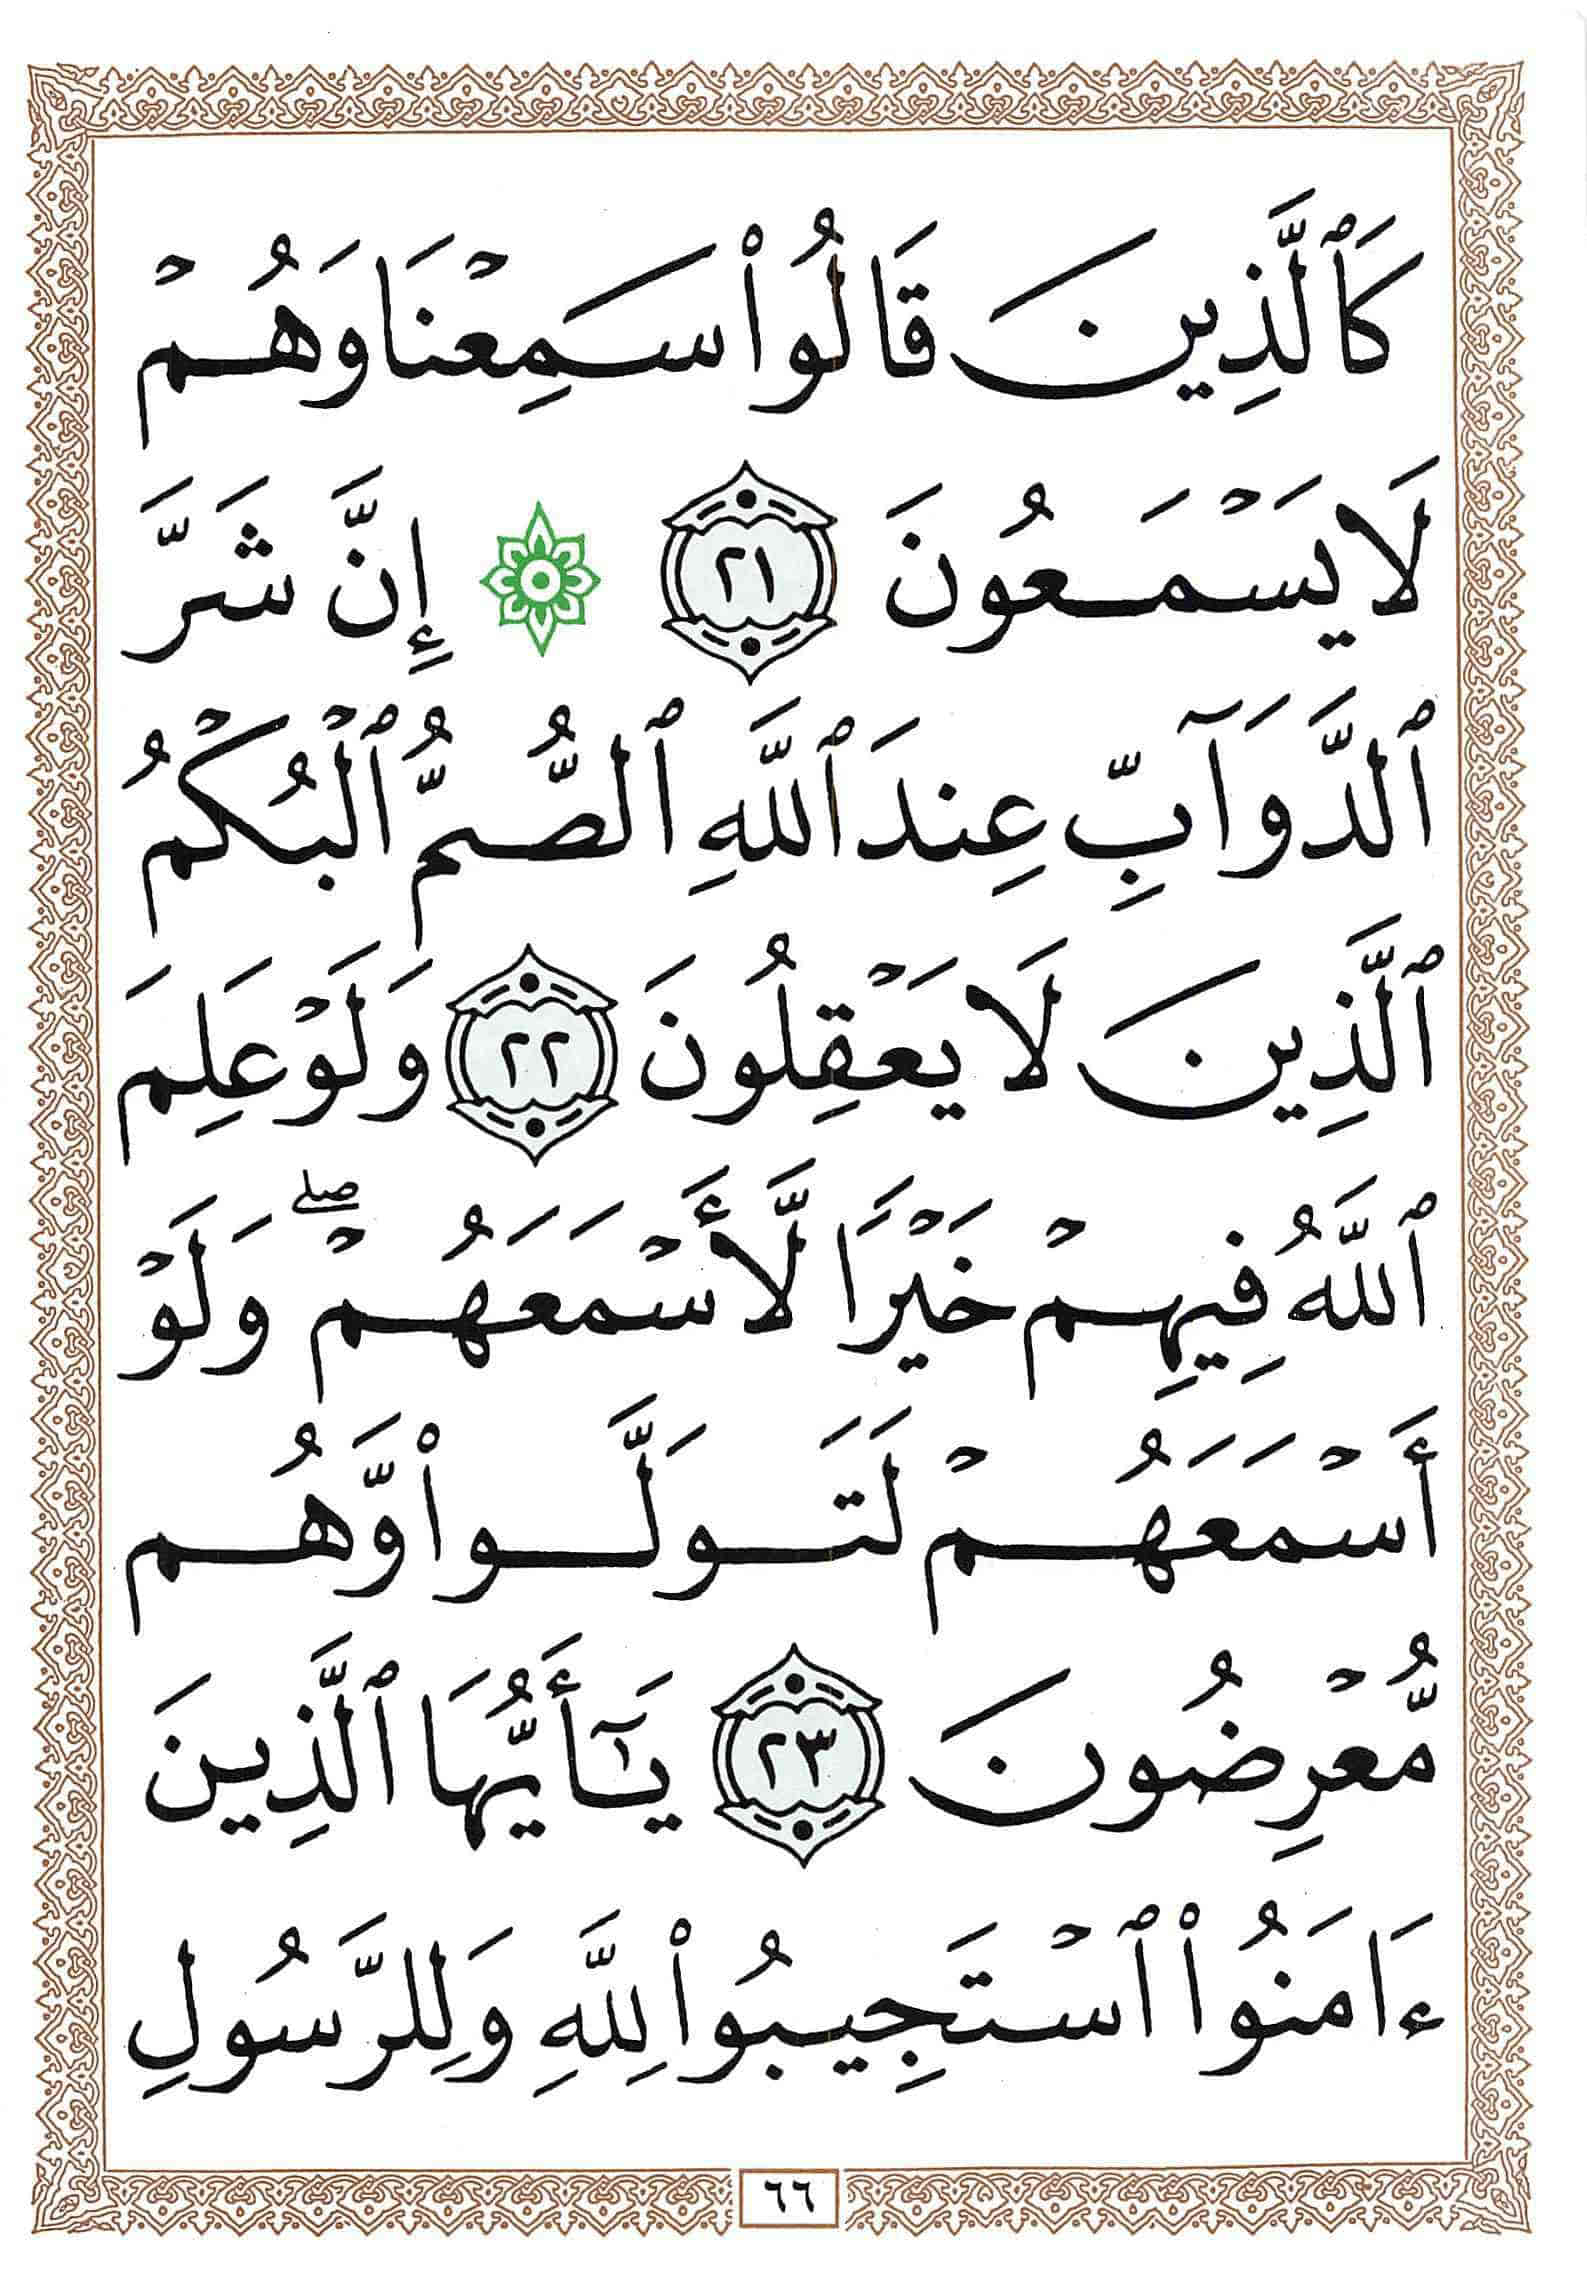 كَٱلَّذِينَ قَالُوا۟ سَمِعْنَا وَهُمْ
لَا يَسْمَعُونَ ٢١ ۞ إِنَّ شَرَّ
ٱلدَّوَآبِّ عِندَ ٱللَّهِ ٱلصُّمُّ ٱلْبُكْمُ
ٱلَّذِينَ لَا يَعْقِلُونَ ٢٢ وَلَوْ عَلِمَ
ٱللَّهُ فِيهِمْ خَيْرًا لَّأَسْمَعَهُمْ ۖ وَلَوْ
أَسْمَعَهُمْ لَتَوَلَّوا۟ وَّهُم
مُّعْرِضُونَ ٢٣ يَـٰٓأَيُّهَا ٱلَّذِينَ
ءَامَنُوا۟ ٱسْتَجِيبُوا۟ لِلَّهِ وَلِلرَّسُولِ
٦٦